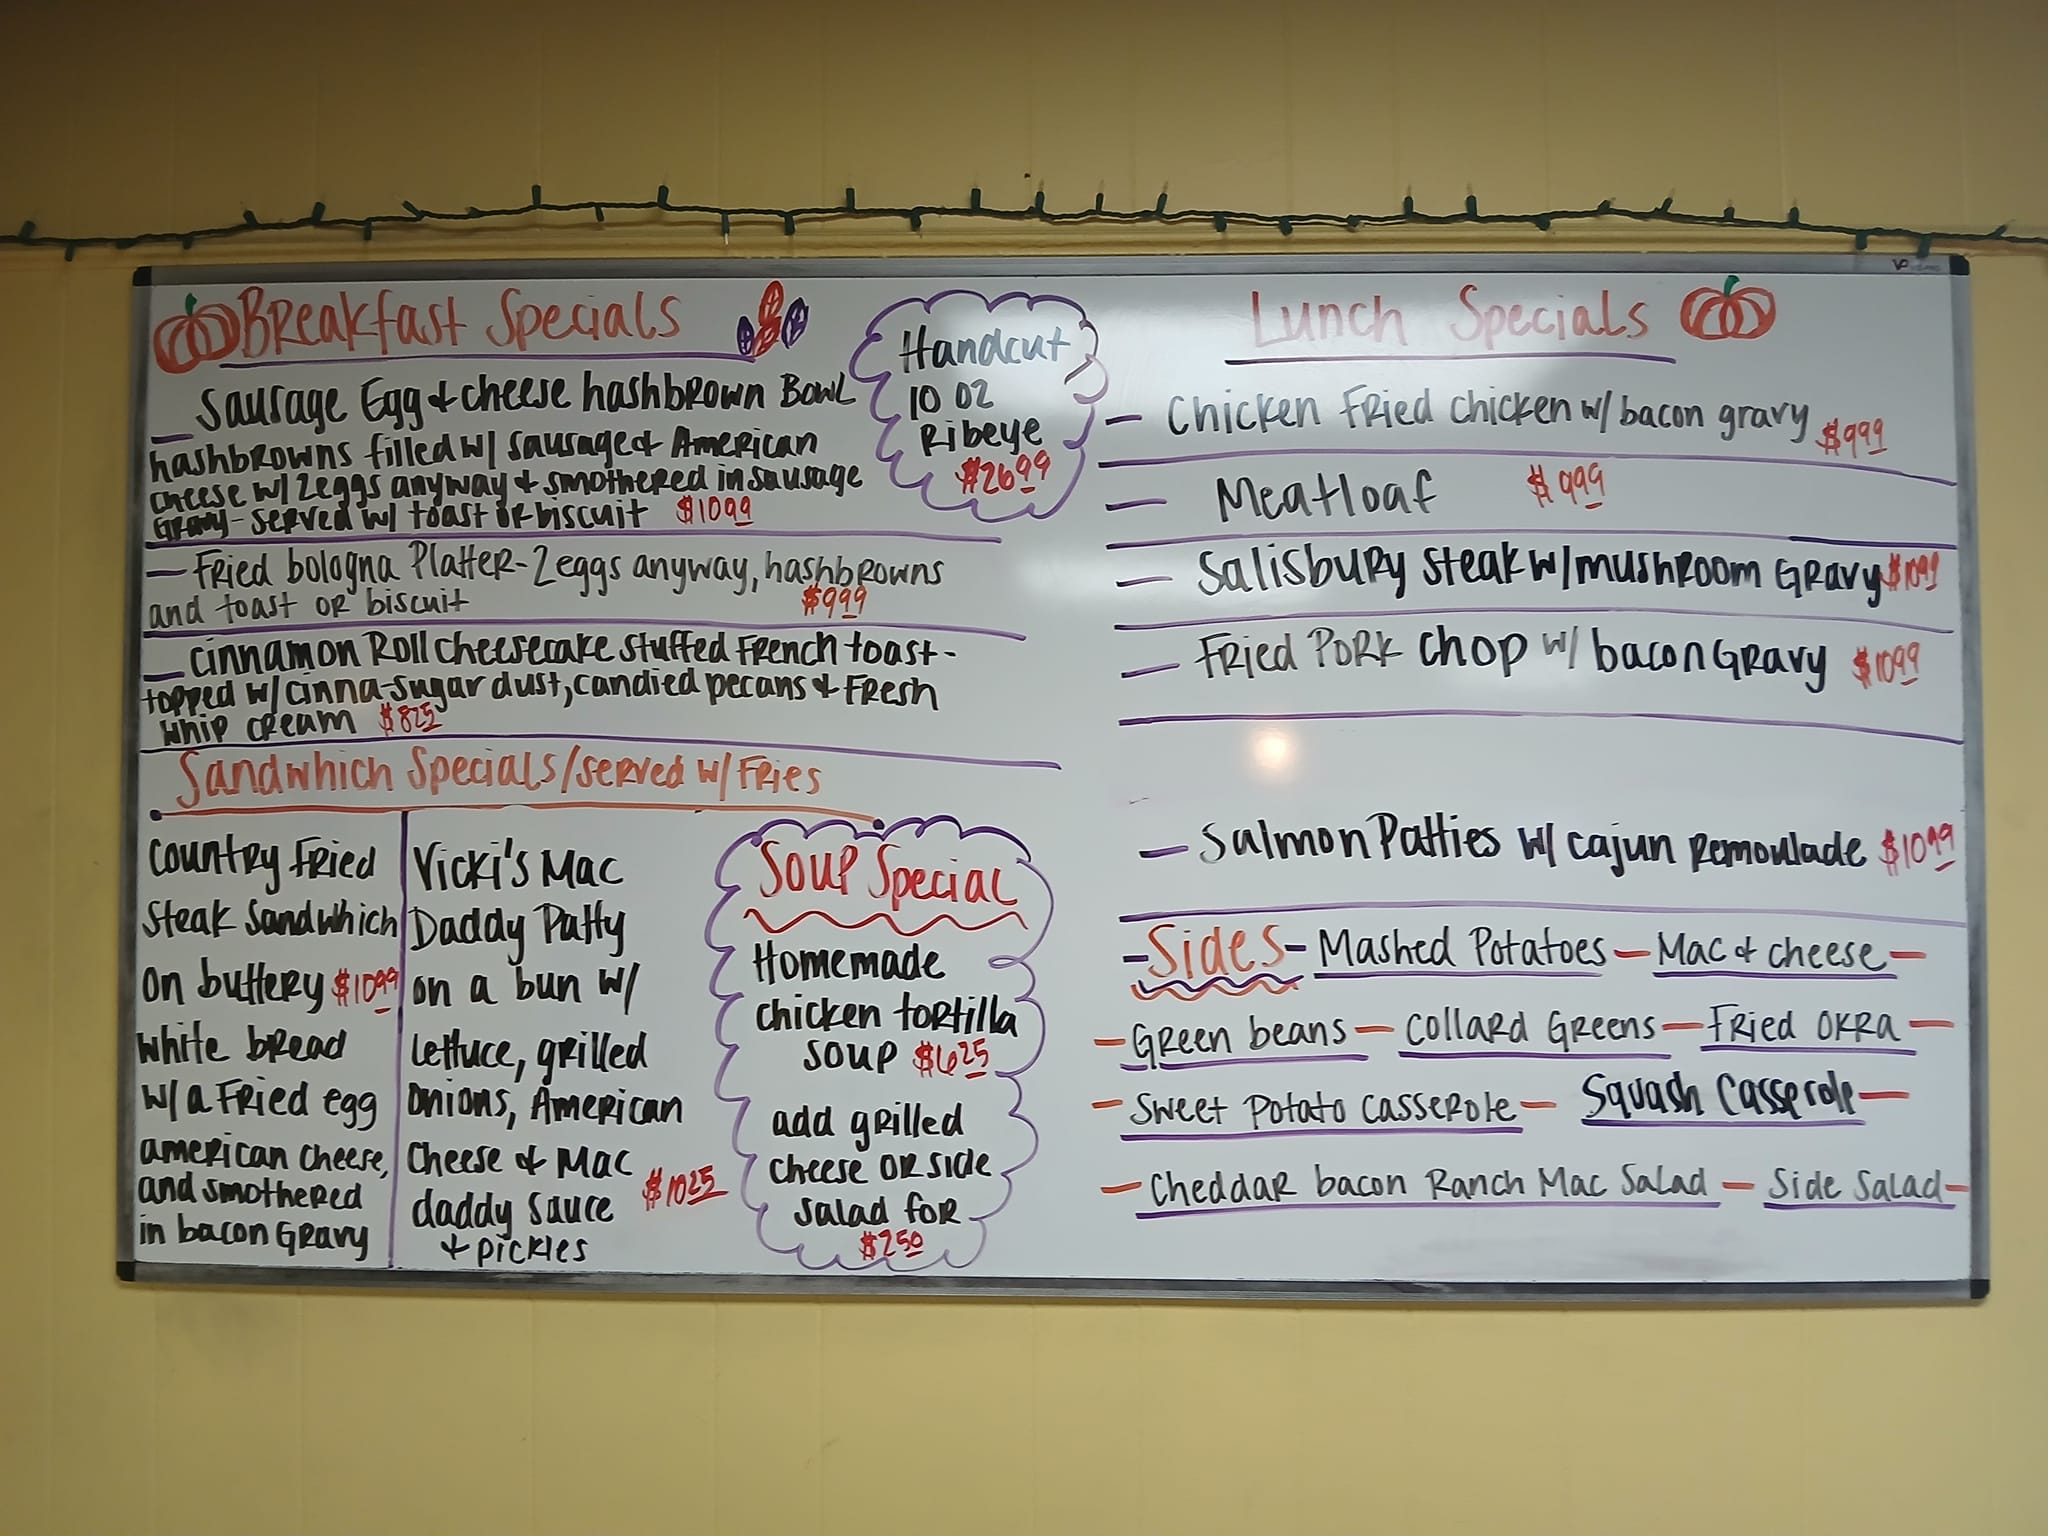 Breakfast Specials
— Sausage Egg & cheese hashbrown Bowl
hashbrowns filled w/ sausage & American
cheese w/ 2 eggs anyway & smothered in sausage
Gravy - served w/ toast or biscuit $10.99
— Fried bologna Platter - 2 eggs anyway, hashbrowns
and toast or biscuit $9.99
— cinnamon Roll cheesecake stuffed French toast -
topped w/ cinna-sugar dust, candied pecans & Fresh
whip cream $8.25
Handcut
10 oz
Ribeye
$26.99
Sandwhich Specials/served w/ Fries
Country Fried
Steak Sandwhich
on buttery $10.99
white bread
w/ a Fried egg
american cheese,
and smothered
in bacon Gravy
Vicki's Mac
Daddy Patty
on a bun w/
lettuce, grilled
onions, American
Cheese & Mac
daddy sauce $10.25
& pickles
Soup Special
Homemade
chicken tortilla
soup $6.25
add grilled
cheese or side
salad for
$2.50
Lunch Specials
— Chicken Fried chicken w/ bacon gravy $9.99
— Meatloaf $9.99
— Salisbury Steak w/ mushroom Gravy $10.99
— Fried Pork Chop w/ bacon Gravy $10.99
— Salmon Patties w/ cajun remoulade $10.99
- Sides - Mashed Potatoes — Mac & cheese —
— Green beans — Collard Greens — Fried Okra —
— Sweet Potato Casserole — Squash Casserole —
— Cheddar bacon Ranch Mac Salad — Side Salad —